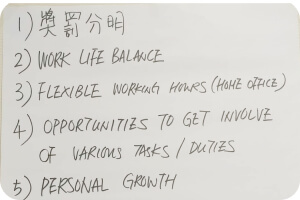 1) 獎罰分明
2) WORK LIFE BALANCE
3) FLEXIBLE WORKING HOURS (HOME OFFICE)
4) OPPORTUNITIES TO GET INVOLVE
OF VARIOUS TASKS / DUTIES
5) PERSONAL GROWTH